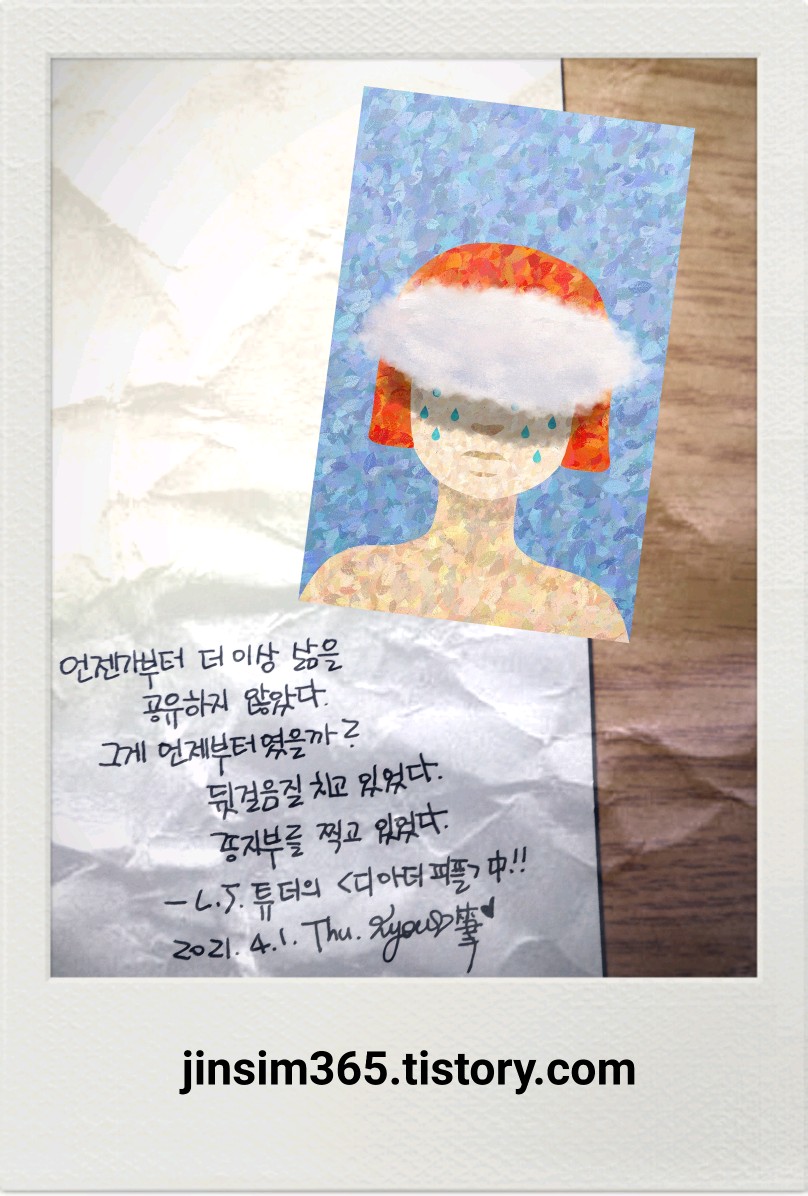 언젠가부터 더 이상 삶을
공유하지 않았다.
그게 언제부터였을까?
뒷걸음질 치고 있었다.
종지부를 찍고 있었다.
- L.J. 튜더의 <디 아더 피플> 中!!
2021. 4. 1. Thu.
jinsim365.tistory.com